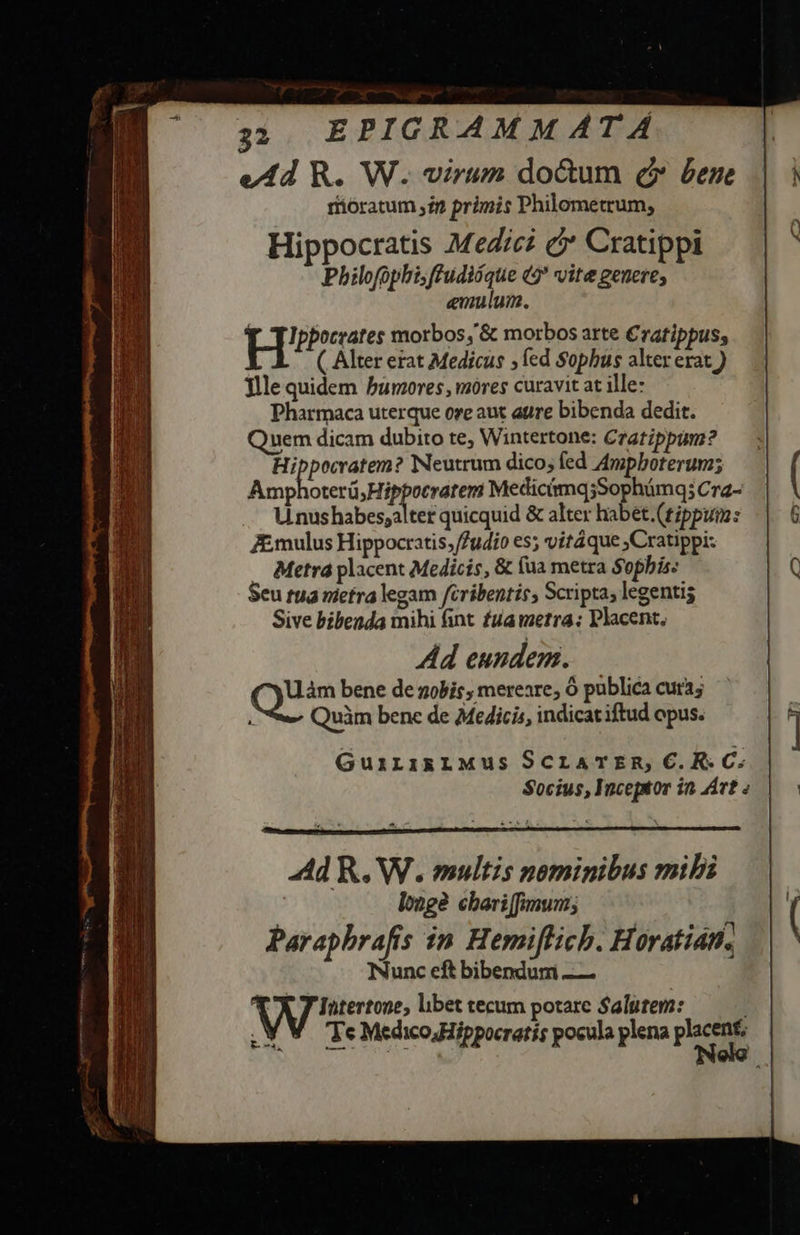 32 EPIGRAMMATA
Ad R. W. virum doctum & bene
moratum, in primis Philometrum,
Hippocratis Medici & Cratippi
Philosophi, studióque & vitæ genere,
æmulum.
HIppocrates morbos, & morbos arte Cratippus,
( Alter erat Medicus, sed Sophus alter erat )
Ille quidem humores, mores curavit at ille:
Pharmaca uterque ore aut aure bibenda dedit.
Quem dicam dubito te, Wintertone: Cratippum?
Hippocratem? Neutrum dico, sed Amphoterum;
Amphoterū, Hippocratem Medicúmq; Sophúmq; Cra-
Unus habes, alter quicquid & alter habet. (tippum:
Æmulus Hippocratis, studio es; vitáque, Cratippi:
Metra placent Medicis, & sua metra Sophis:
Seu tua metra legam scribentis, Scripta, legentis
Sive bibenda mihi sint tua metra: Placent.
Ad eundem.
QUàm bene de nobis, mereare, ô publica cura,
Quàm bene de Medicis, indicat istud opus.
GUILIELMUS SCLATER, C. R. C.
Socius, Inceptor in Art.
Ad R. W. multis nominibus mihi
longè charissimum,
Paraphrasis in Hemistich. Horatian.
Nunc est bibendum ——
WIntertone, libet tecum potare Salutem:
Te Medico, Hippocratis pocula plena placent.
Nolo